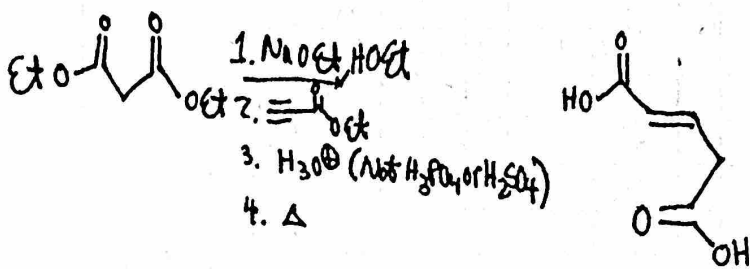 O O
Et O
OEt
1. NaOEt, HOEt
2. ≡
O
OEt
3. H3O⊕ (Not H3PO4 or H2SO4)
4. Δ
O
HO
O
OH